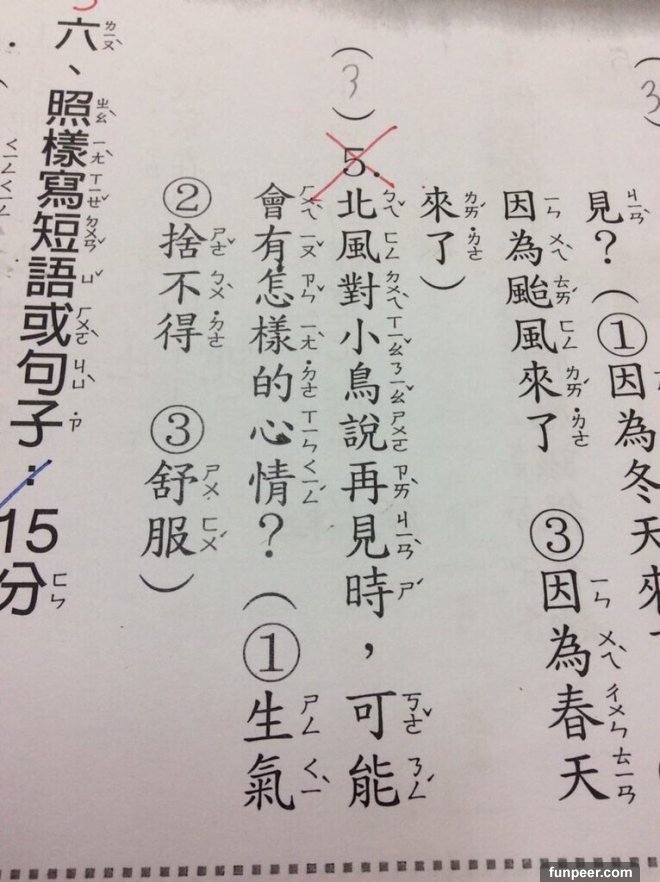 (3
見？(①因為冬天來
因為颱風來了 ③因為春天
來了)
(3)5.北風對小鳥說再見時，可能
會有怎樣的心情？(①生氣
②捨不得 ③舒服)
六、照樣寫短語或句子：15分
funpeer.com